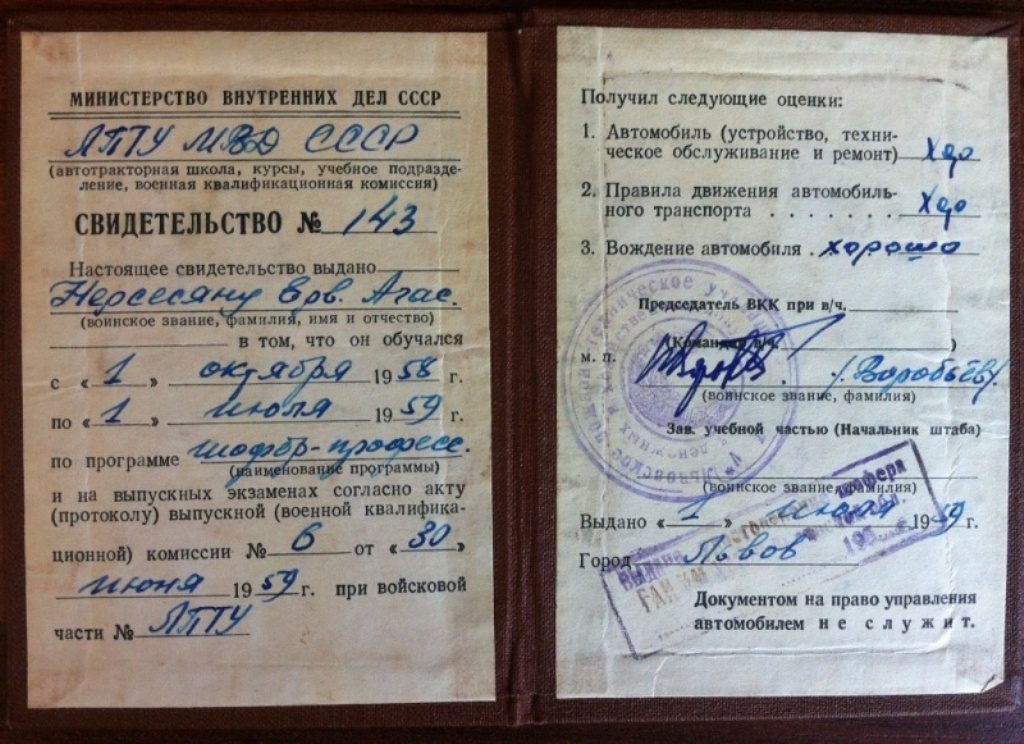 МИНИСТЕРСТВО ВНУТРЕННИХ ДЕЛ СССР
ЛПТУ МВД СССР
(автотракторная школа, курсы, учебное подразде-
ление, военная квалификационная комиссия)
СВИДЕТЕЛЬСТВО № 143
Настоящее свидетельство выдано
Нерсесяну Ерв. Агас.
(воинское звание, фамилия, имя и отчество)
в том, что он обучался
с « 1 » октября 1958 г.
по « 1 » июля 1959 г.
по программе шофёр-професс.
(наименование программы)
и на выпускных экзаменах согласно акту
(протоколу) выпускной (военной квалифика-
ционной) комиссии № 6 от « 30 »
июня 1959 г. при войсковой
части № ЛПТУ
Получил следующие оценки:
1. Автомобиль (устройство, техни-
ческое обслуживание и ремонт) Хор
2. Правила движения автомобиль-
ного транспорта . . . . . . . Хор
3. Вождение автомобиля . хорошо
Председатель ВКК при в/ч.
(Командир в/ч. )
м. п. (Воробьёв)
(воинское звание, фамилия)
Зав. учебной частью (Начальник штаба)
(воинское звание, фамилия)
Выдано « 1 » июля 1959 г.
Город Львов
Документом на право управления
автомобилем не служит.
шофера
ГАИ
195